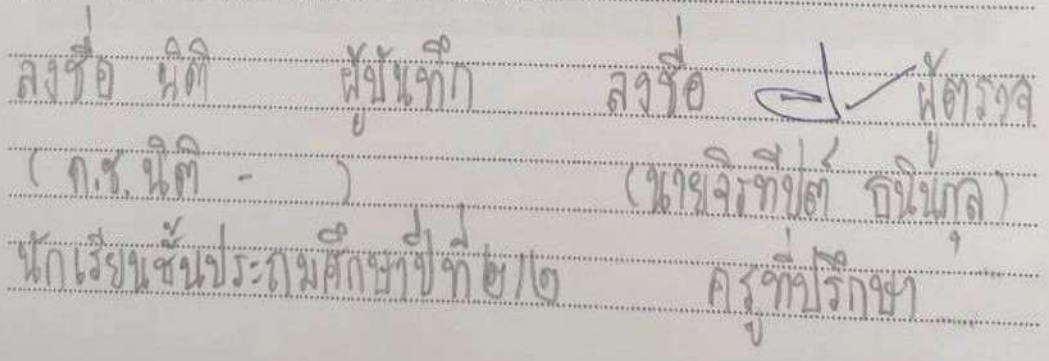 ลงชื่อ นิติ ผู้บันทึก ลงชื่อ ผู้ตรวจ
( ด.ช. นิติ - ) (นายจิรทีปต์ ธนินกุล)
นักเรียนชั้นประถมศึกษาปีที่ ๒/๒ ครูที่ปรึกษา